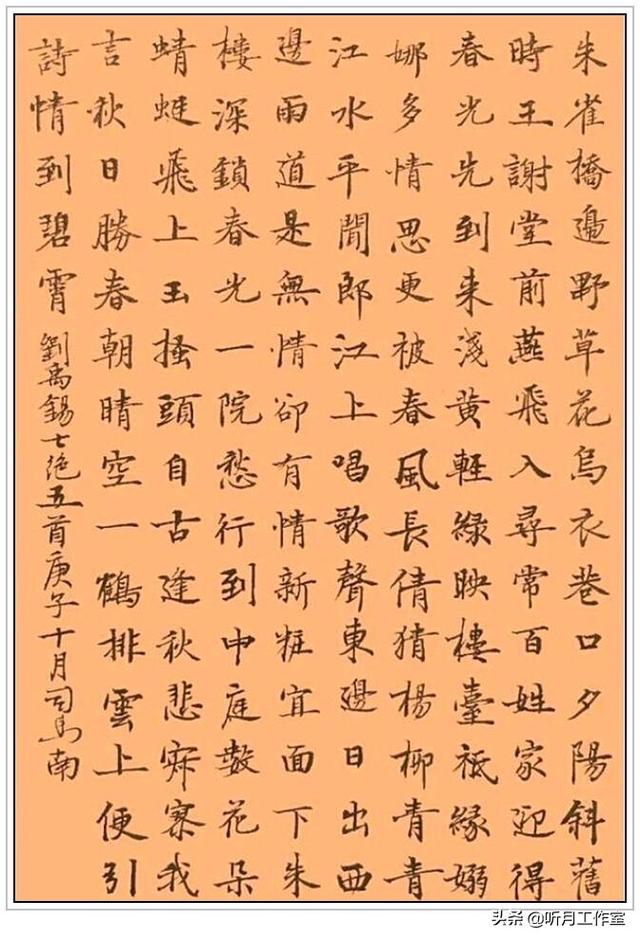 朱雀橋邉野草花烏衣巷口夕陽斜舊
時王謝堂前燕飛入尋常百姓家迎得
春光先到来淺黄輕緑映樓臺祗緣嫋
娜多情思更被春風長倩猜楊柳青青
江水平聞郎江上唱歌聲東邊日出西
邊雨道是無情卻有情新粧宜面下朱
樓深鎖春光一院愁行到中庭數花朵
蜻蜓飛上玉搔頭自古逢秋悲寂寥我
言秋日勝春朝晴空一鶴排雲上便引
詩情到碧霄劉禹錫七绝五首庚子十月司马南
头条 @听月工作室